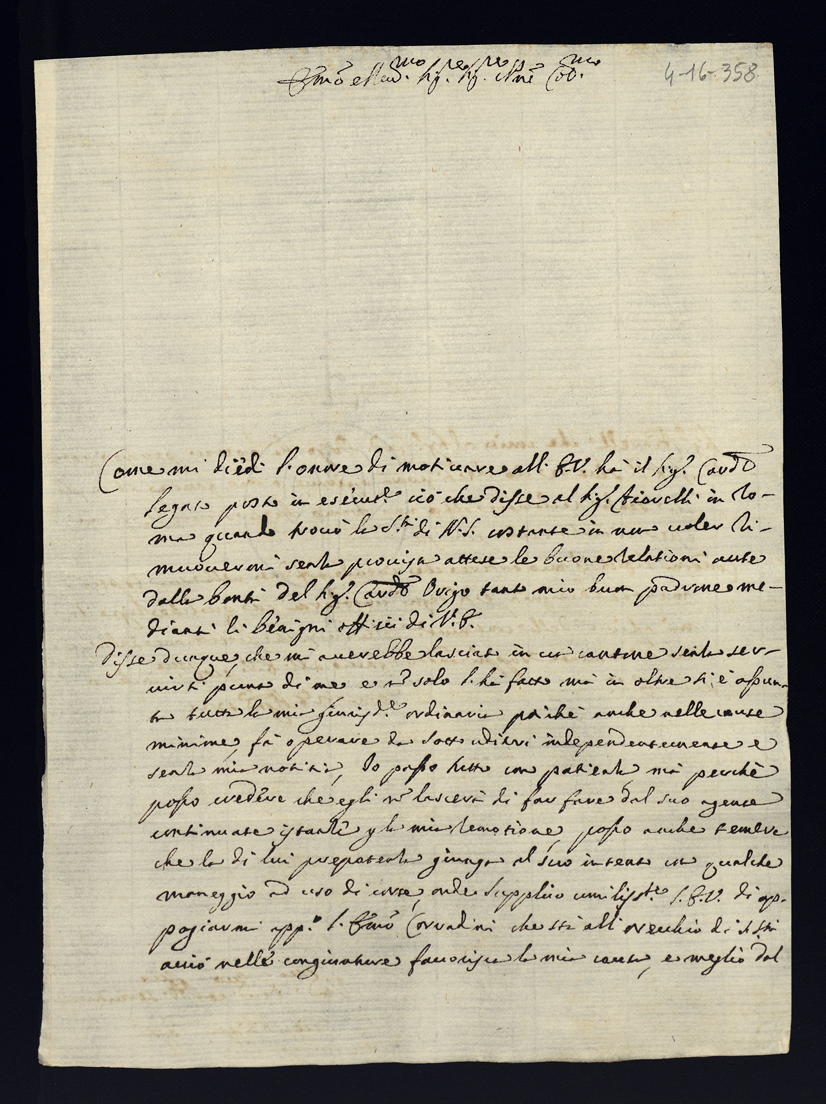 Em̃o e Rev.mo Sig.re Sig.re P.rone Col.mo
4-16-358
Come mi diedi l'onore di motivare all'E.V. hà il Sig.r Card.
Legato posto in esecut.e ciò che disse al Sig.r Fiorelli in Ro-
ma quando trovò la S.tà di N.S. costante in non voler ri-
muovermi senza provista attese le buone relationi avute
dalla bontà del Sig.r Card. Origo tanto mio buon padrone me-
dianti li benigni offitii di V.E.
Disse dunque, che mi averebbe lasciato in un cantone senza ser-
virsi punto di me e nõ solo l'hà fatto mà in oltre si è assun-
ta tutta la mia giurisd.e ordinaria poiche anche nelle cause
minime, fà operare da sotto uditori independentemente e
senza mia notitia, Io passo tutto con patienza mà perchè
posso credere che egli nõ lascerà di far fare dal suo agente
continuate istanze p la mia remotione, posso anche temere
che la di lui prepotenza giunga al suo intento con qualche
maneggio ad uso di corte, onde supplico umiliss.te l'E.V. di ap-
pogiarmi app.o l'Em̃o Corradini che stà all'orecchio di S. S.tà
acciò nelle congionture favorisca la mia causa, e meglio dal